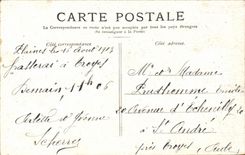 CARTE POSTALE
La Correspondance au recto n'est pas acceptée par tous les pays étrangers
(Se renseigner à la Poste)
Côté correspondance
Côté adresse.
15 Août 1905
Passerai à Troyes
Demain, 11h05
et Yvonne
Mr et Madame
Prudhomme
20 Avenue d'Echenilly 20
à St André
près Troyes, Aube